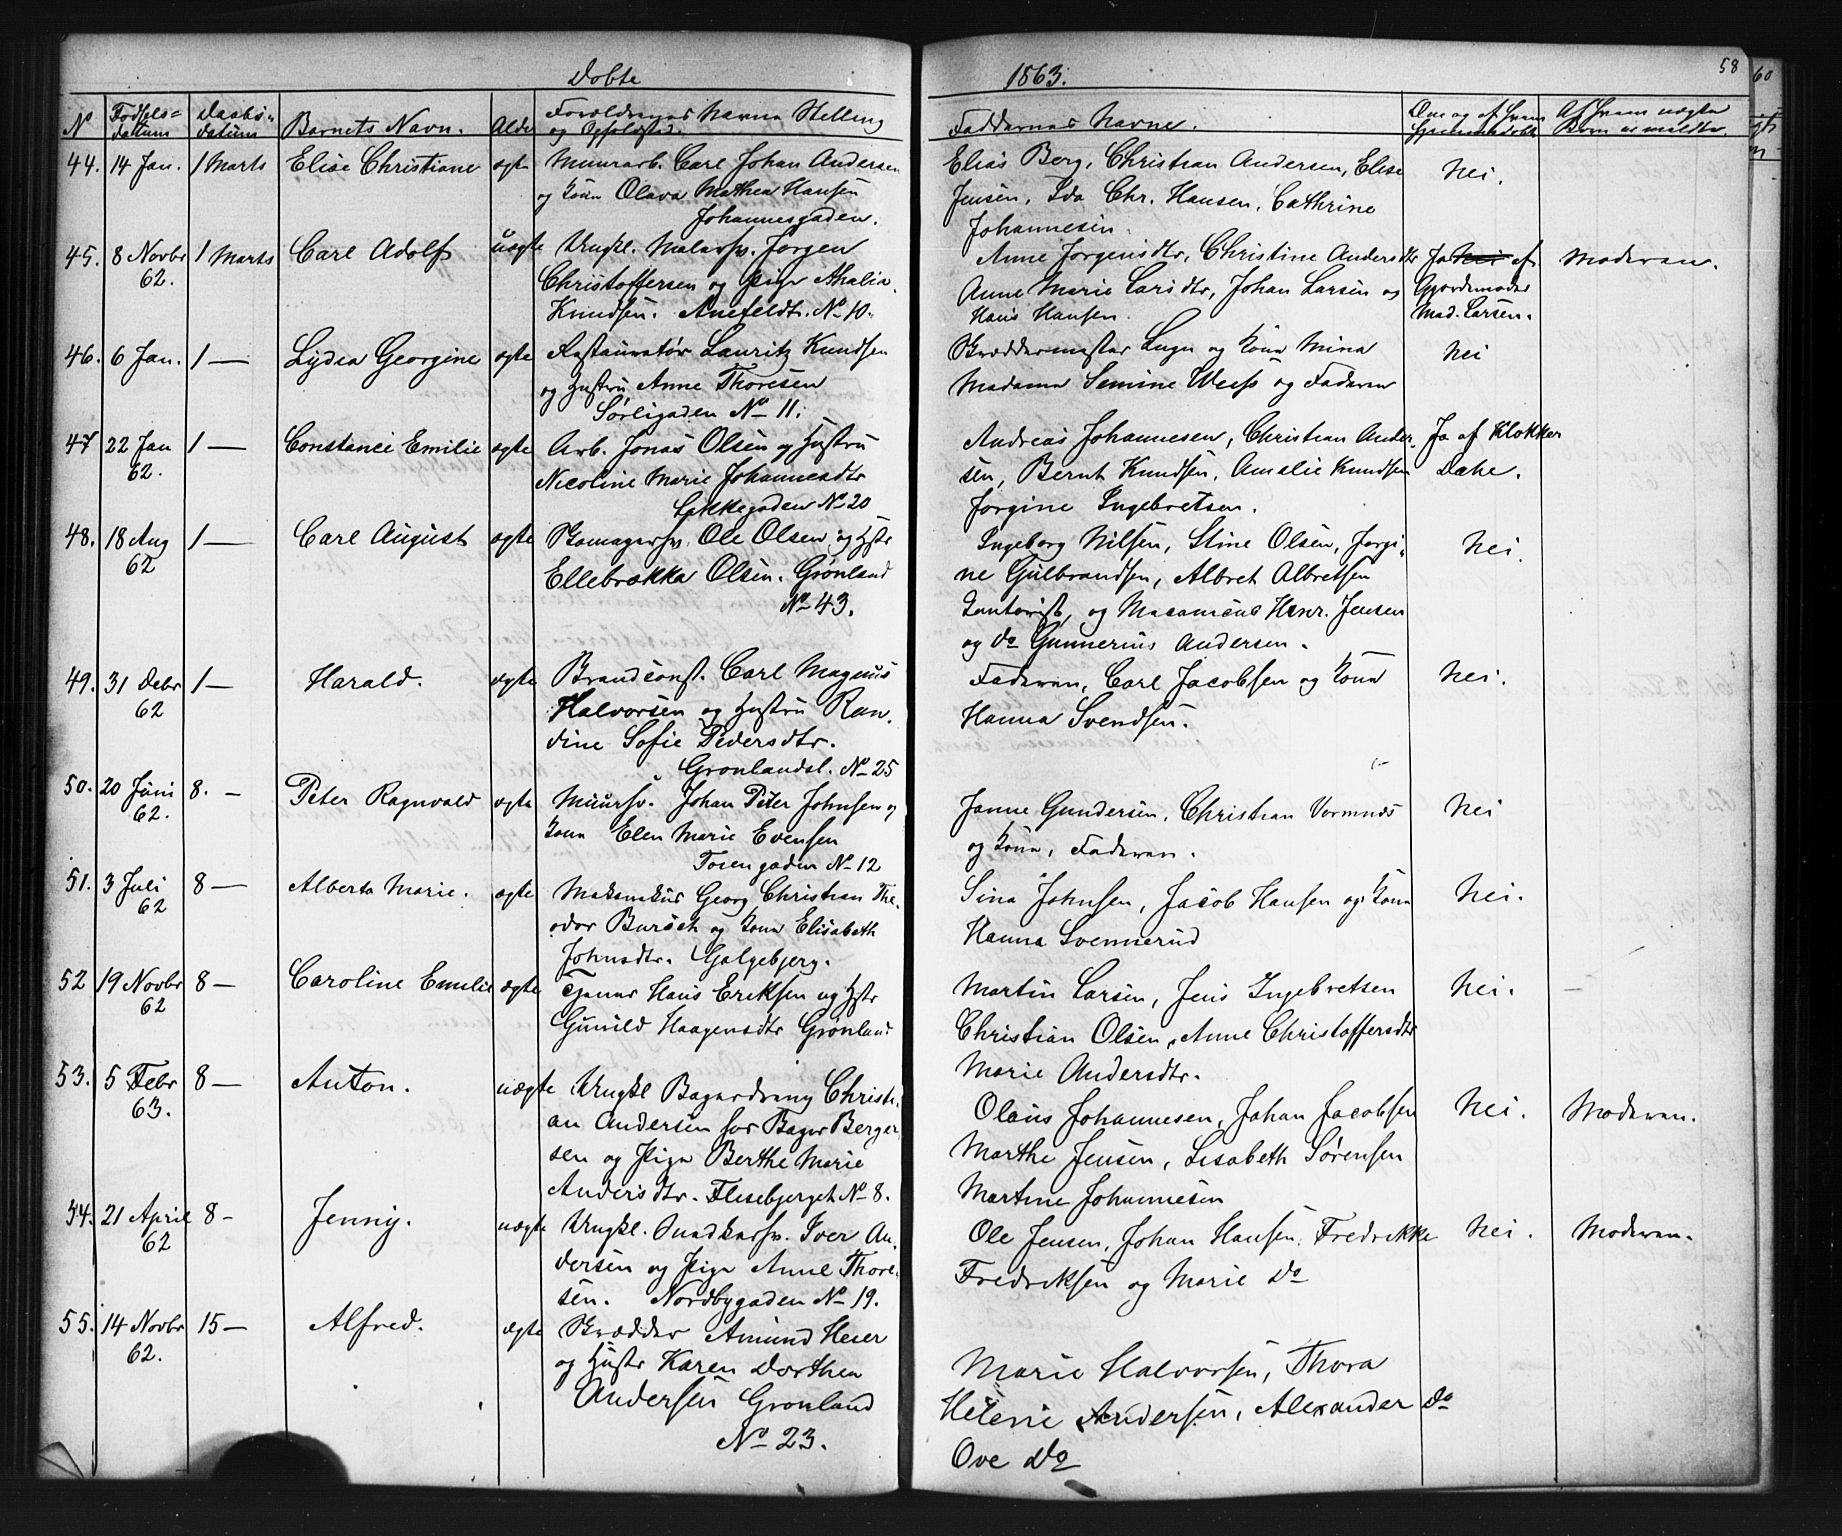 Døbte
1863.
58
60
No
Fødsels=
datum
Daabs=
datum
Barnets Navn.
Alder
Forældrenes Navne Stilling
og Opholdsted.
Faddernes Navne.
Om og af hvem
hjemmedøbt
Af hvem uægte
Børn er meldte
44. 14 Jan. 1 Marts Elise Christiane ægte Muurarb. Carl Johan Andersen
og Kone Olava Mathea Hansen
Johannesgaden.
Elias Berg, Christian Andersen, Elise
Jensen, Ida Chr. Hansen, Cathrine
Johannesen.
Nei.
45. 8 Novbr 1 Marts Carl Adolf uægte Ungkl. Malersv. Jørgen
62.
Christoffersen og Pige Athalia
Knudsen. Anefeldt. No 10.
Anne Jørgensdtr, Christine Andersdtr
Anne Marie Larsdtr, Johan Larsen og
Hans Hansen.
Ja nei af
Gjordemoder
Mad. Larsen.
Moderen.
46. 6 Jan. 1 — Lydia Georgine ægte Restauratør Lauritz Knudsen
og Hustru Anne Thoresen
Sørligaden No 11.
Bræddermester Lugn og Kone Mina
Madame Semine Weiss og Faderen
Nei
47 22 Jan 1 — Constance Emilie ægte Arb. Jonas Olsen og Hustru
62.
Nicoline Marie Johannesdtr
Lakkegaden No 20
Andreas Johannesen, Christian Ander,
sen, Bernt Knudsen, Amalie Knudsen
Jorgine Ingebretsen.
Ja af Klokker
Dahe.
48. 18 Aug 1 — Carl August ægte Skomagersv. Ole Olsen og Hstr
62
Ellebrækka Olsen. Grønland
No 43.
Ingeborg Nilsen, Stine Olsen, Jorgi,
ne Gulbrandsen, Albret Albretsen
Kontorist, og Macanicus Henr. Jensen
og do Gunnerius Andersen.
Nei.
49. 31 Debr 1 — Harald. ægte Brandconst. Carl Magnus
62
Halvorsen og Hustru Ran,
dine Sofie Pedersdtr.
Grønlandsl. No 25
Faderen, Carl Jacobsen og Kone
Hanna Svendsen.
Nei.
50. 20 Juni 8. — Peter Ragnvald ægte Muursv. Johan Peter Johnsen og
62.
Kone Elen Marie Evensen
Toiengaden No 12
Janne Gundersen, Christian Vormnæs
og Kone, Faderen.
Nei
51. 3 Juli 8 — Alberta Marie. ægte Mekanikus Georg Christian The,
62
odor Bursch og Kone Elisabeth
Johnsdtr. Galgebjerg.
Sina Johnsen, Jacob Hansen og Kone
Hanna Svennerud
Nei.
52 19 Novbr 8 — Caroline Emilie ægte Tjener Hans Eriksen og Hstr
62
Gunild Haagensdtr Grønland
Martin Larsen, Jens Ingebretsen
Christian Olsen, Anne Christoffersdtr
Marie Andersdtr.
Nei.
53. 5 Febr 8 — Anton. uægte Ungkl Bagerdreng Christi,
63.
an Andersen hos Bager Berger
sen og Pige Berthe Marie
Andersdtr. Flisebjerget No 8.
Olaus Johannesen, Johan Jacobsen
Marthe Jensen, Lisabeth Sørensen
Martine Johannesen
Nei.
Moderen.
54. 21 April 8 — Jenny. uægte Ungkl. Snedkersv. Iver An,
62
dersen og Pige Anne Thore,
sen. Nordbygaden No 19.
Ole Jensen, Johan Hansen, Fredrikke
Fredriksen og Marie do
Nei.
Moderen.
55. 14 Novbr 15 — Alfred. ægte Brædder Amund Heier
62.
og Hustr Karen Dorthea
Andersen Grønland
No 23.
Marie Halvorsen, Thora
Helene Andersen, Alexander do
Ove do